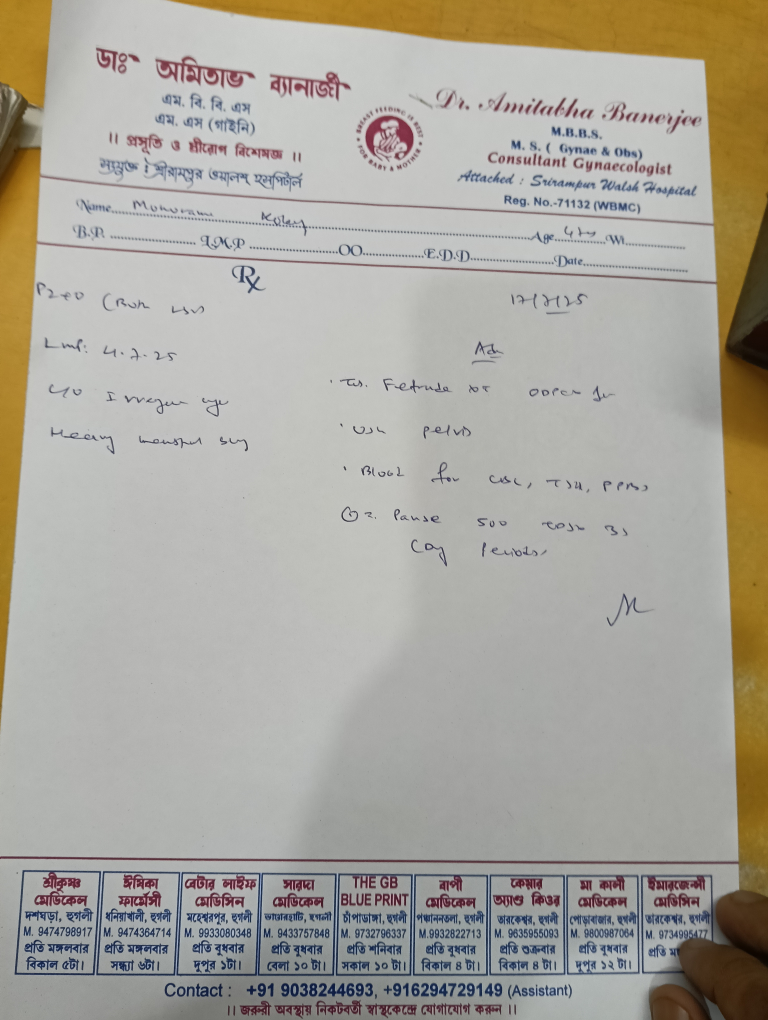 ডাঃ অমিতাভ ব্যানার্জী
এম. বি. বি. এস
এম. এস (গাইনি)
।। প্রসূতি ও স্ত্রীরোগ বিশেষজ্ঞ ।।
সংযুক্ত : শ্রীরামপুর ওয়ালশ হসপিটাল
BREAST FEEDING IS BEST FOR BABY & MOTHER
Dr. Amitabha Banerjee
M.B.B.S.
M. S. ( Gynae & Obs)
Consultant Gynaecologist
Attached : Srirampur Walsh Hospital
Reg. No.-71132 (WBMC)
Name Age Wt
B.P. L.M.P OO E.D.D Date
Rx
P2+0 (Both
LMP: 4.7.25
Heavy
17/7/25
Adv
USG pelvis
Blood for CBC, TSH, PPBS
Pause 500
Periods
শ্রীকৃষ্ণ মেডিকেল
দশঘড়া, হুগলী
M. 9474798917
প্রতি মঙ্গলবার
বিকাল ৫টা।
ঈষিকা ফার্মেসী
ধনিয়াখালী, হুগলী
M. 9474364714
প্রতি মঙ্গলবার
সন্ধ্যা ৬টা।
বেটার লাইফ মেডিসিন
মহেশ্বরপুর, হুগলী
M. 9933080348
প্রতি বুধবার
দুপুর ১টা।
সারদা মেডিকেল
হুগলী
M. 9433757848
প্রতি বুধবার
বেলা ১০ টা।
THE GB BLUE PRINT
চাঁপাডাঙ্গা, হুগলী
M. 9732796337
প্রতি শনিবার
সকাল ১০ টা।
বাপী মেডিকেল
পঞ্চাননতলা, হুগলী
M.9932822713
প্রতি বুধবার
বিকাল ৪ টা।
কেয়ার অ্যান্ড কিওর
তারকেশ্বর, হুগলী
M. 9635955093
প্রতি শুক্রবার
বিকাল ৪ টা।
মা কালী মেডিকেল
পোড়াবাজার, হুগলী
M. 9800987064
প্রতি বুধবার
দুপুর ১২ টা।
ইমারজেন্সী মেডিসিন
তারকেশ্বর, হুগলী
M. 9734995477
প্রতি
Contact : +91 9038244693, +916294729149 (Assistant)
।। জরুরী অবস্থায় নিকটবর্তী স্বাস্থ্যকেন্দ্রে যোগাযোগ করুন ।।